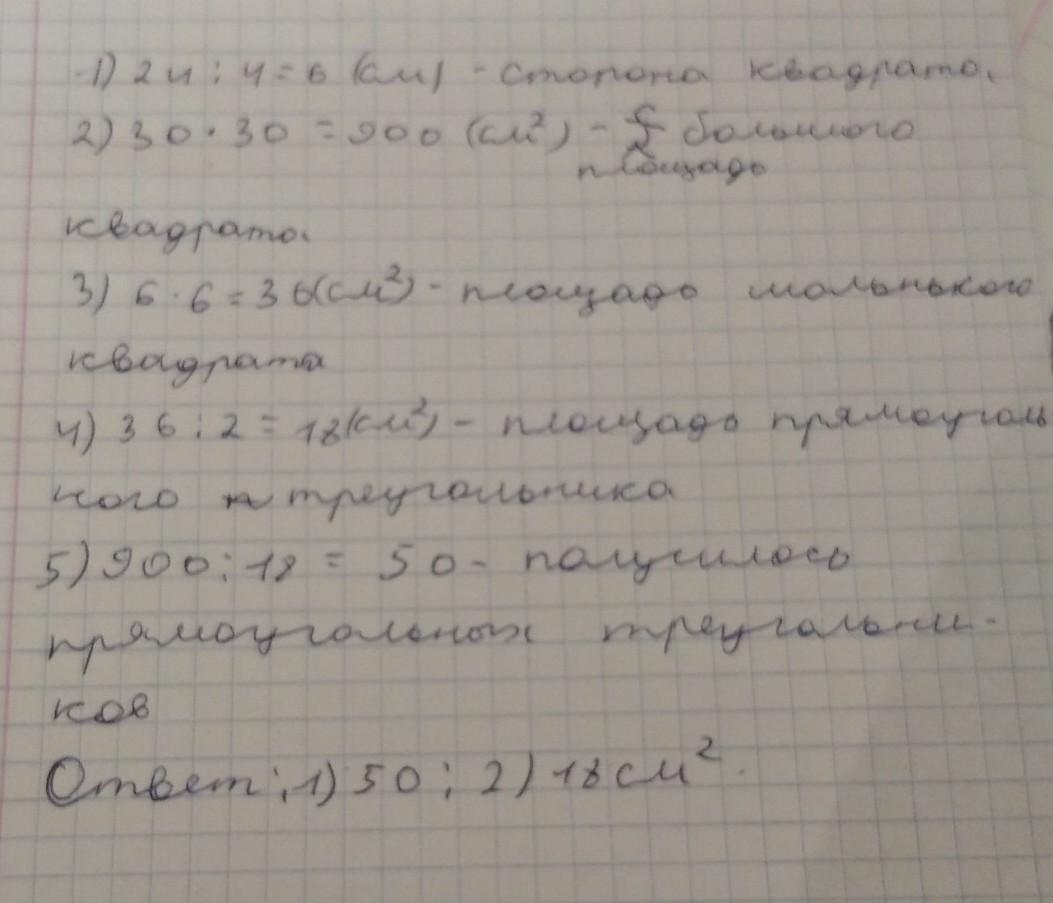 1) 24 : 4 = 6 (см) - сторона квадрата.
2) 30 · 30 = 900 (см²) - большого
площадь
квадрата.
3) 6 · 6 = 36 (см²) - площадь маленького
квадрата
4) 36 : 2 = 18 (см²) - площадь прямоуголь
ного треугольника
5) 900 : 18 = 50 - получилось
прямоугольных треугольни-
ков
Ответ: 1) 50 ; 2) 18 см².